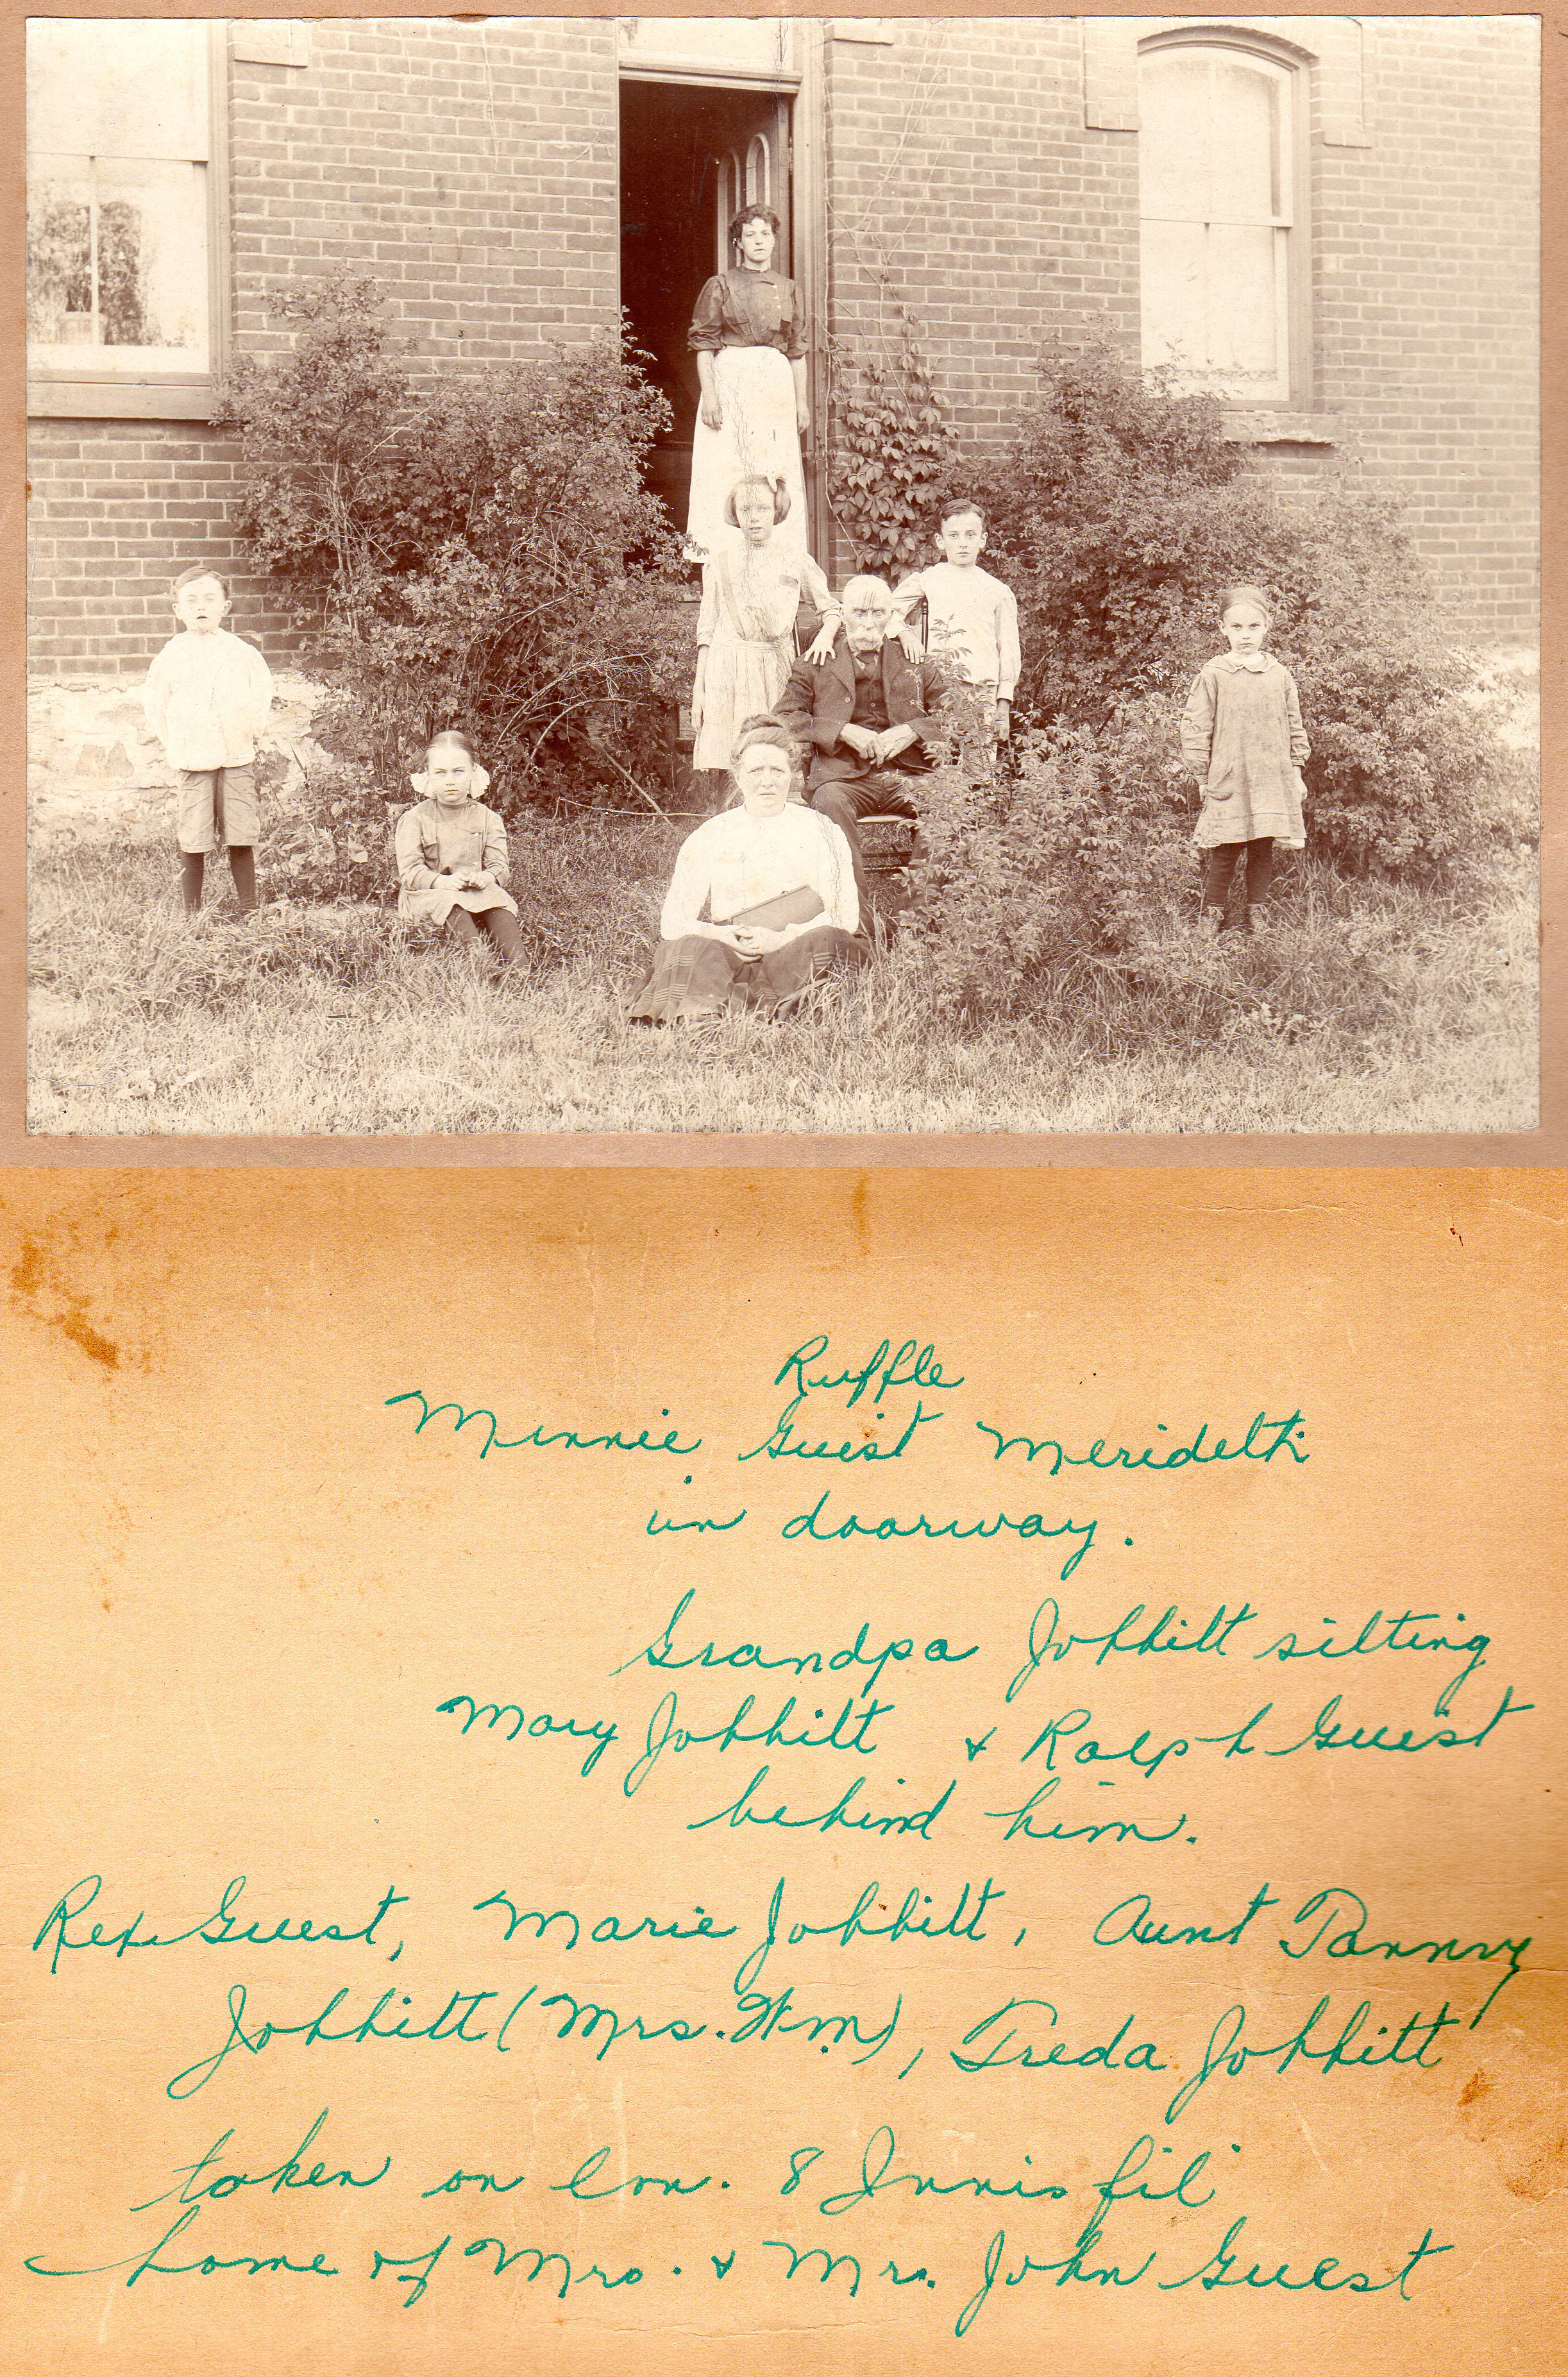 Ruffle
Minnie Guest Merideth
in doorway.
Grandpa Jobbitt sitting
Mary Jobbitt & Ralph Guest
behind him.
Rex Guest, Marie Jobbitt, Aunt Fanny
Jobbitt (Mrs. Wm), Freda Jobbitt
taken on Con. 8 Innisfil
home of Mrs. & Mr. John Guest